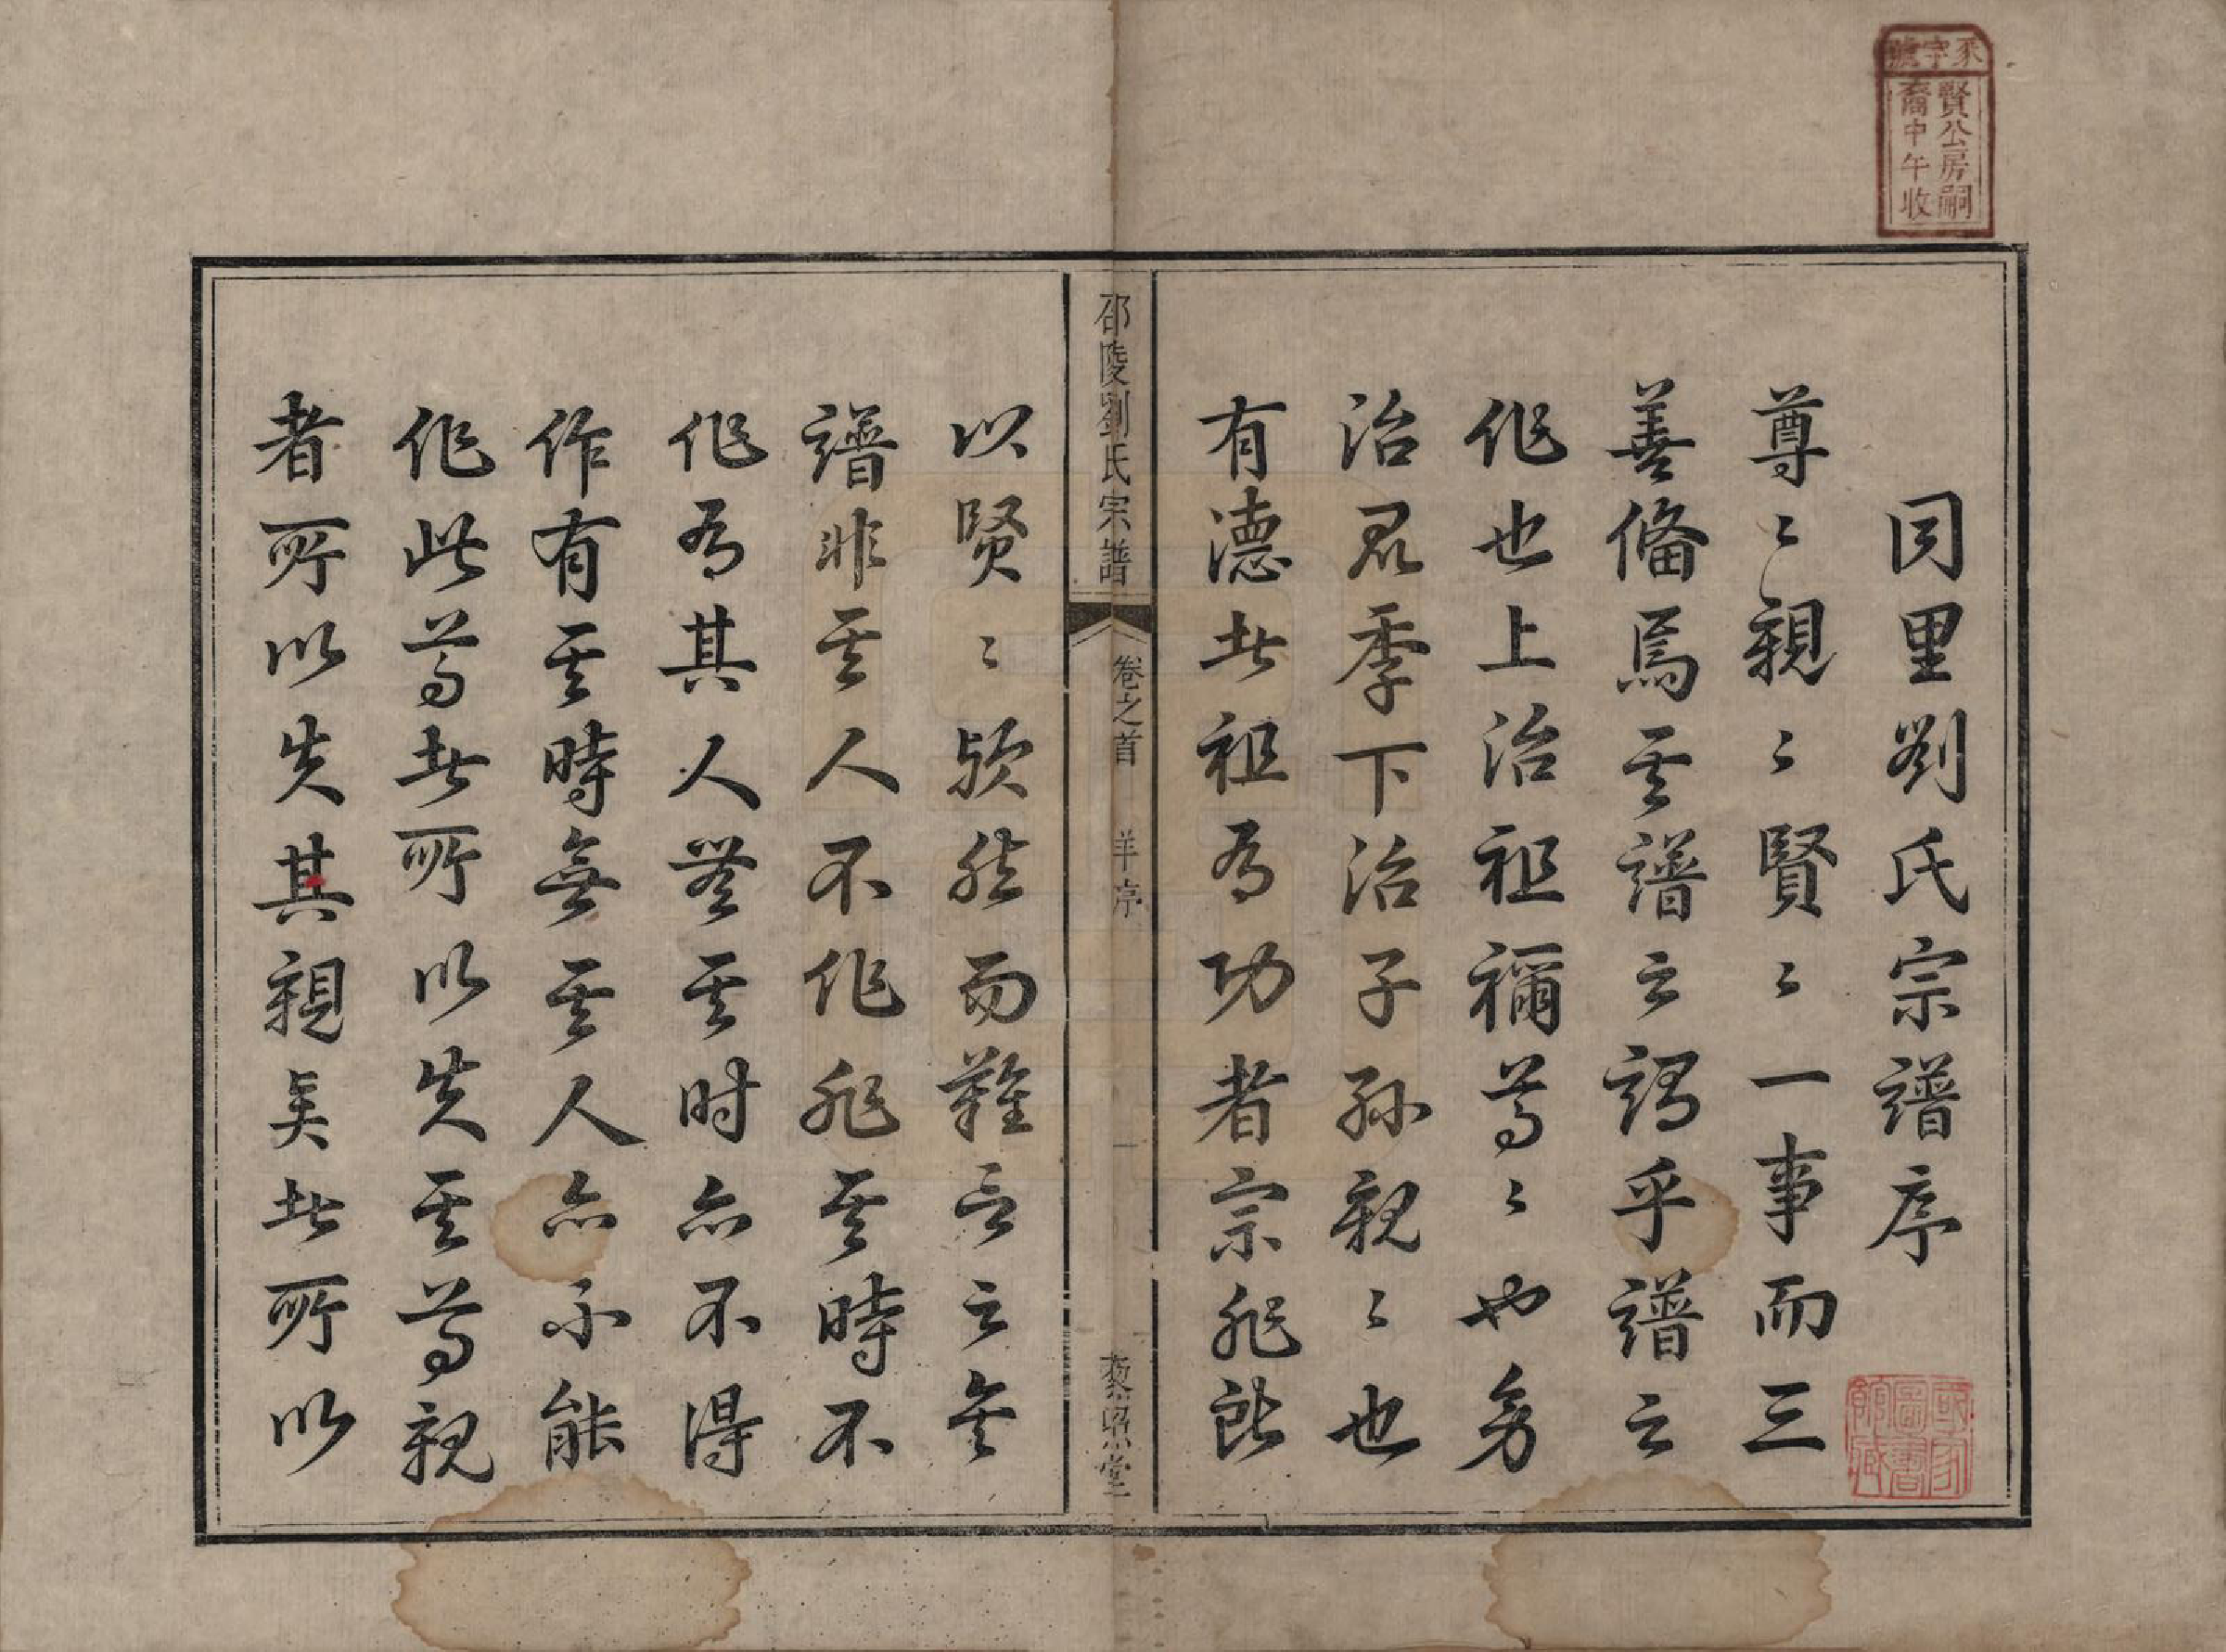 字號
賢公房嗣
裔中午收
同里劉氏宗譜序
國家圖書館藏
尊〻親〻賢〻一事而三
善備焉其譜之謂乎譜之
作也上治祖禰尊〻也旁
治昆季下治子孫親〻也
有德者祖有功者宗非即
邵陵劉氏宗譜 卷之首 羊序 一 藜照堂
以賢〻歟然而難言之矣
譜非其人不作非其時不
作有其人無其时亦不得
作有其時無其人亦不能
作此尊者所以失其尊親
者所以失其親賢者所以